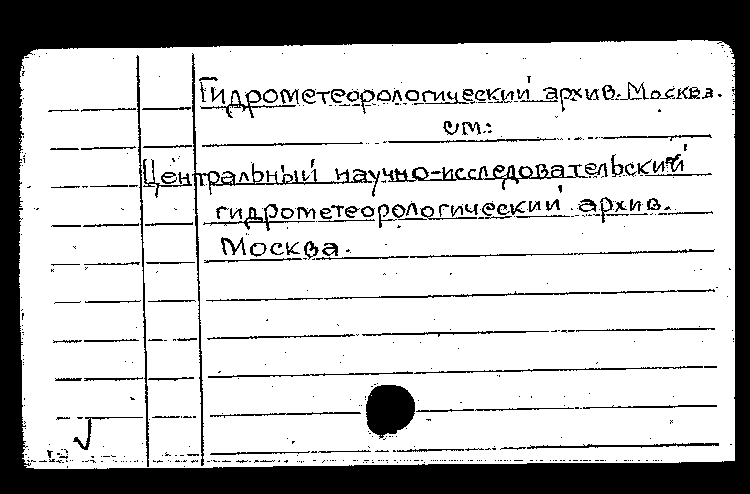 Гидрометеорологический архив. Москва.
см.:
Центральный научно-исследовательский
гидрометеорологический архив.
Москва.